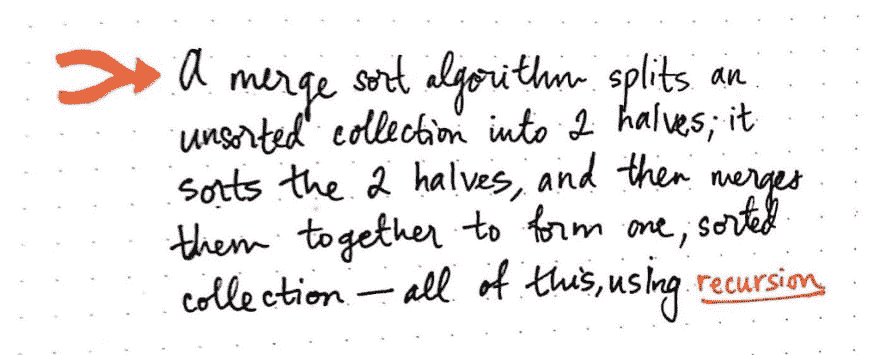 A merge sort algorithm splits an
unsorted collection into 2 halves; it
sorts the 2 halves, and then merges
them together to form one, sorted
collection — all of this, using recursion